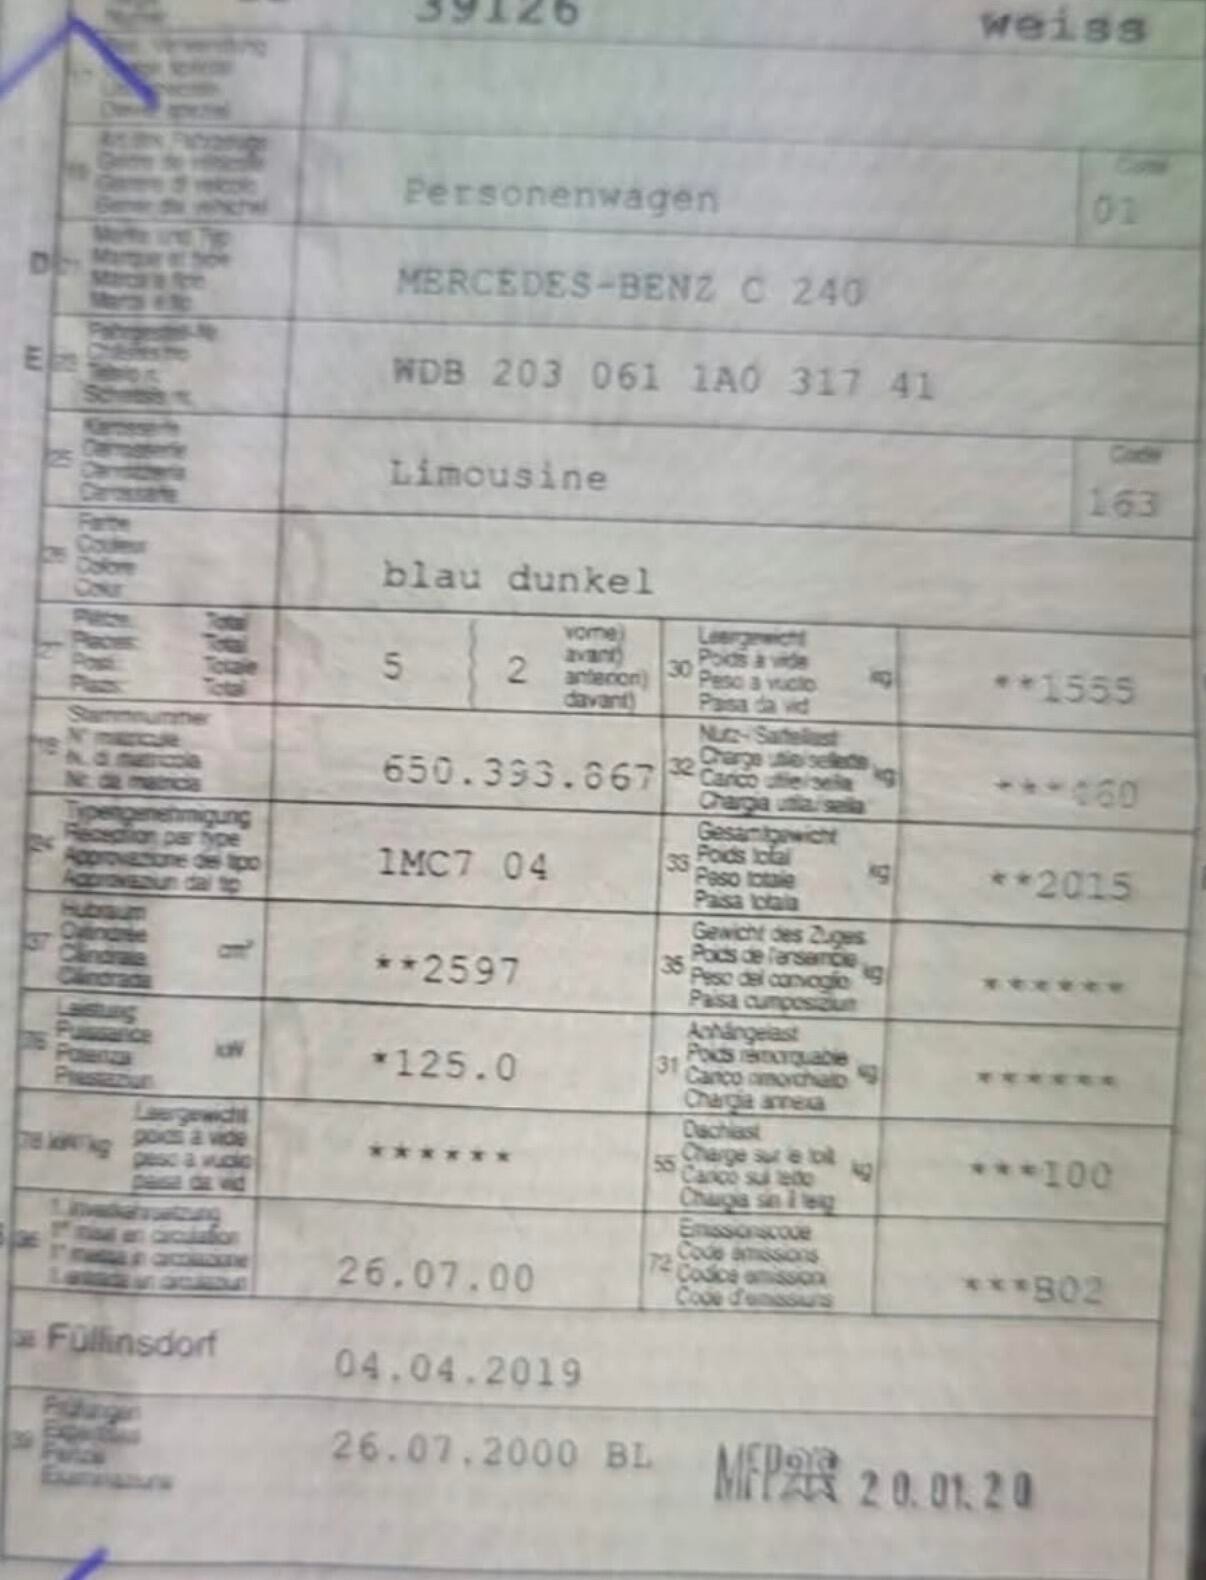 39126 weiss
Code
Personenwagen 01
Marke und Typ
Marque et type
D Marca e tipo
MERCEDES-BENZ C 240
E WDB 203 061 1A0 317 41
25 Limousine Code 163
Carrosserie
Farbe
Couleur
26 Colore
Colur
blau dunkel
Total
Total
27 Totale
Total
5 2
vorne)
avant)
anteriori)
davant)
Leergewicht
30 Poids à vide kg
Peso a vuoto
Paisa da vid
**1555
Stammnummer
N° matricule
18 N. di matricola
Nr. da matricla
650.393.867
Nutz-/Sattellast
32 Charge utile/sellette kg
Carico utile/sella
Chargia utila/sella
***460
Typengenehmigung
24 Réception par type
Approvazione del tipo
Approvaziun dal tip
1MC7 04
Gesamtgewicht
33 Poids total kg
Peso totale
Paisa totala
**2015
Hubraum
37 Cylindrée cm³
Cilindrata
Cilindrada
**2597
Gewicht des Zuges
35 Poids de l'ensemble kg
Peso del convoglio
Paisa cumposiziun
******
Leistung
76 Puissance kW
Potenza
Prestaziun
*125.0
Anhängelast
31 Poids remorquable kg
Carico rimorchiato
Chargia annexa
******
Leergewicht
78 kW/kg poids à vide
peso a vuoto
paisa da vid
******
Dachlast
55 Charge sur le toit kg
Carico sul tetto
Chargia sin il tetg
***100
1. Inverkehrsetzung
36 1re mise en circulation
1a messa in circolazione
1. entrada en circulaziun
26.07.00
Emissionscode
72 Code émissions
Codice emissioni
Code d'emissiuns
***B02
38 Füllinsdorf 04.04.2019
Prüfungen
39 Expertises
Perizie
Examinaziuns
26.07.2000 BL MFP 20.01.20